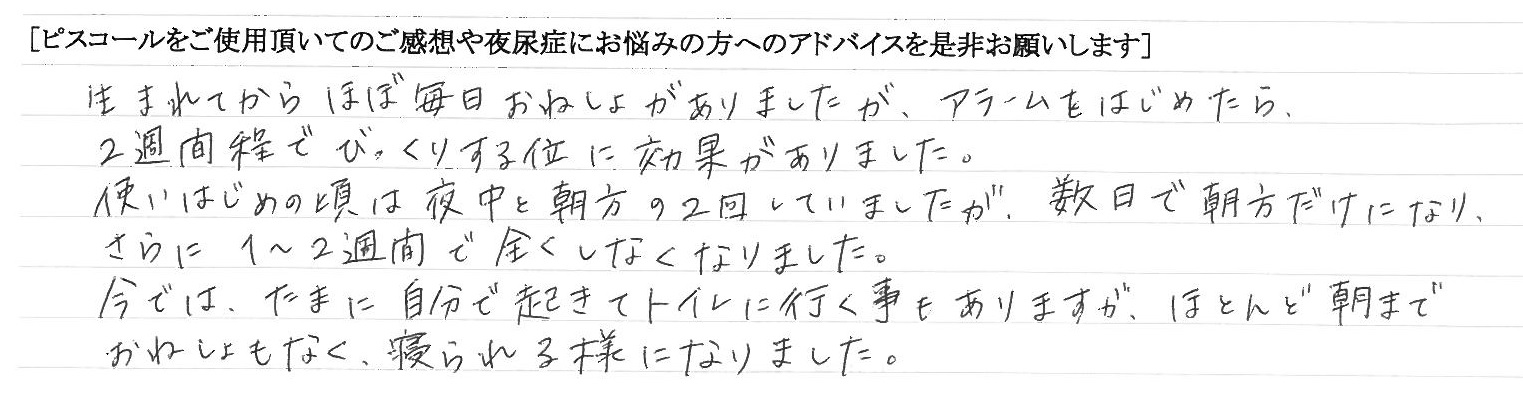 [ピスコールをご使用頂いてのご感想や夜尿症にお悩みの方へのアドバイスを是非お願いします]
生まれてからほぼ毎日おねしょがありましたが、アラームをはじめたら、
2週間程でびっくりする位に効果がありました。
使いはじめの頃は夜中と朝方の2回していましたが、数日で朝方だけになり、
さらに1～2週間で全くしなくなりました。
今では、たまに自分で起きてトイレに行く事もありますが、ほとんど朝まで
おねしょもなく、寝られる様になりました。